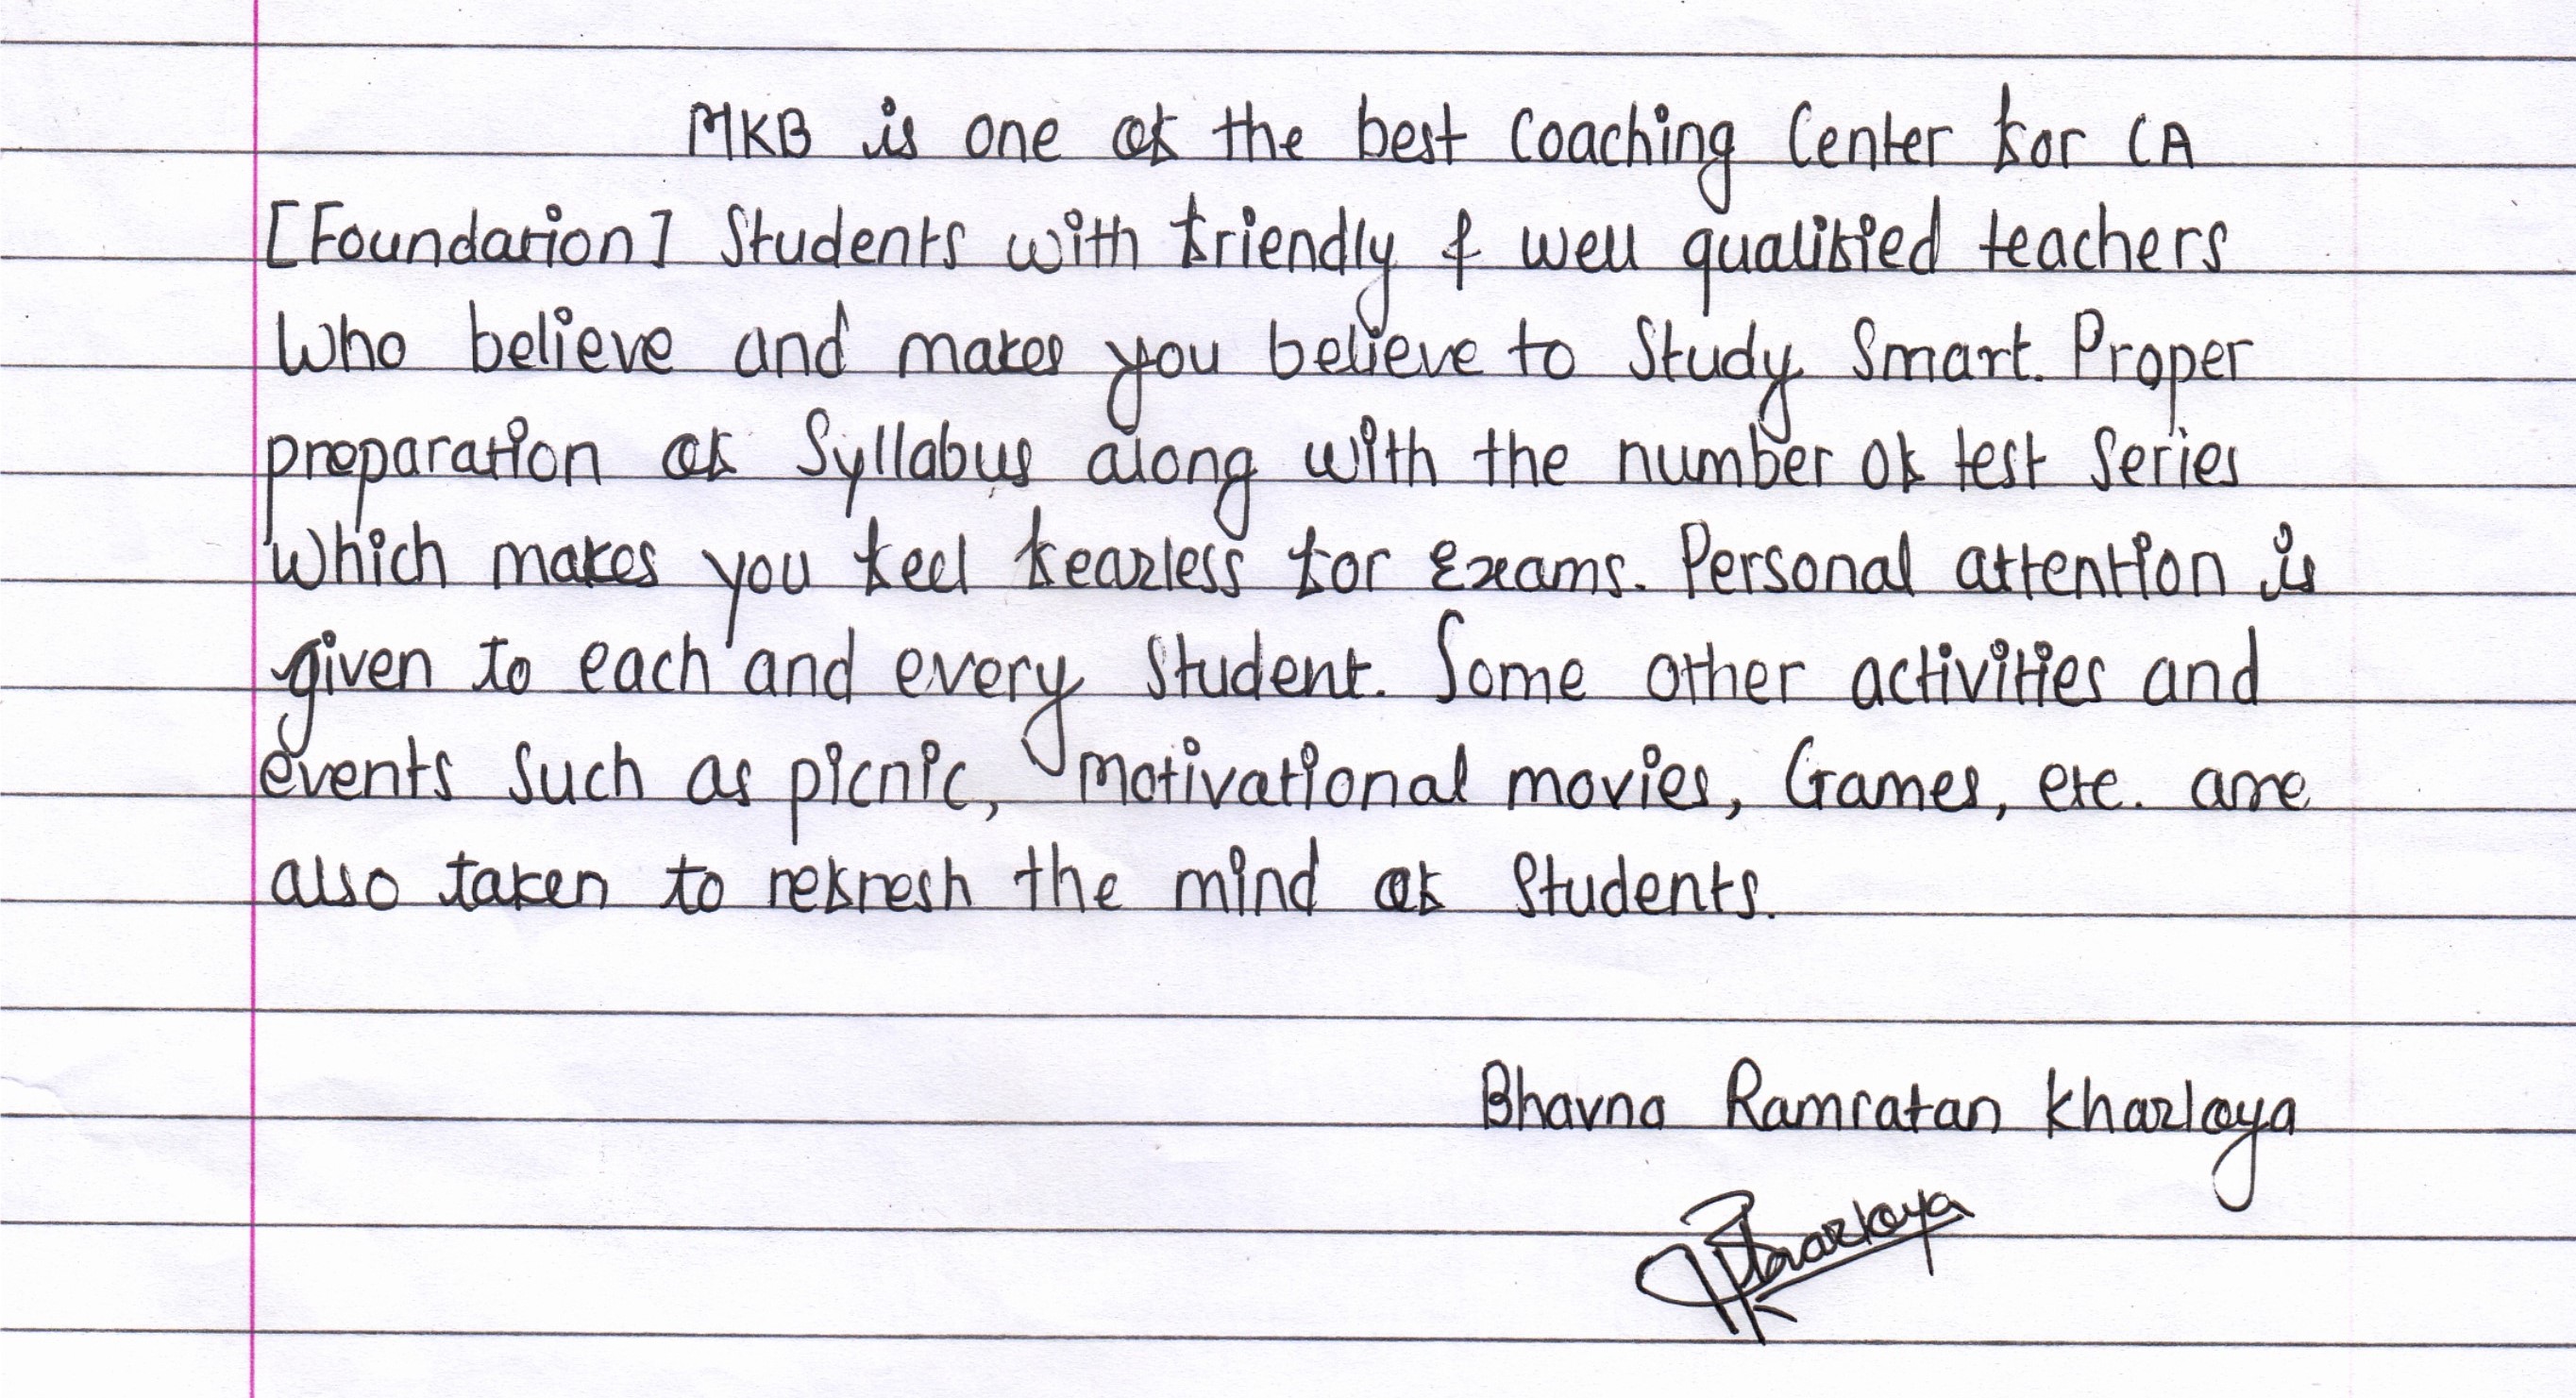 MKB is one of the best Coaching Center for CA
[Foundation] Students with friendly & well qualified teachers
Who believe and makes you believe to Study Smart. Proper
preparation of Syllabus along with the number of test Series
Which makes you feel fearless for Exams. Personal attention is
given to each and every Student. Some other activities and
events Such as picnic, motivational movies, Games, etc. are
also taken to refresh the mind of Students.
Bhavna Ramratan Kharloya
Kharloya